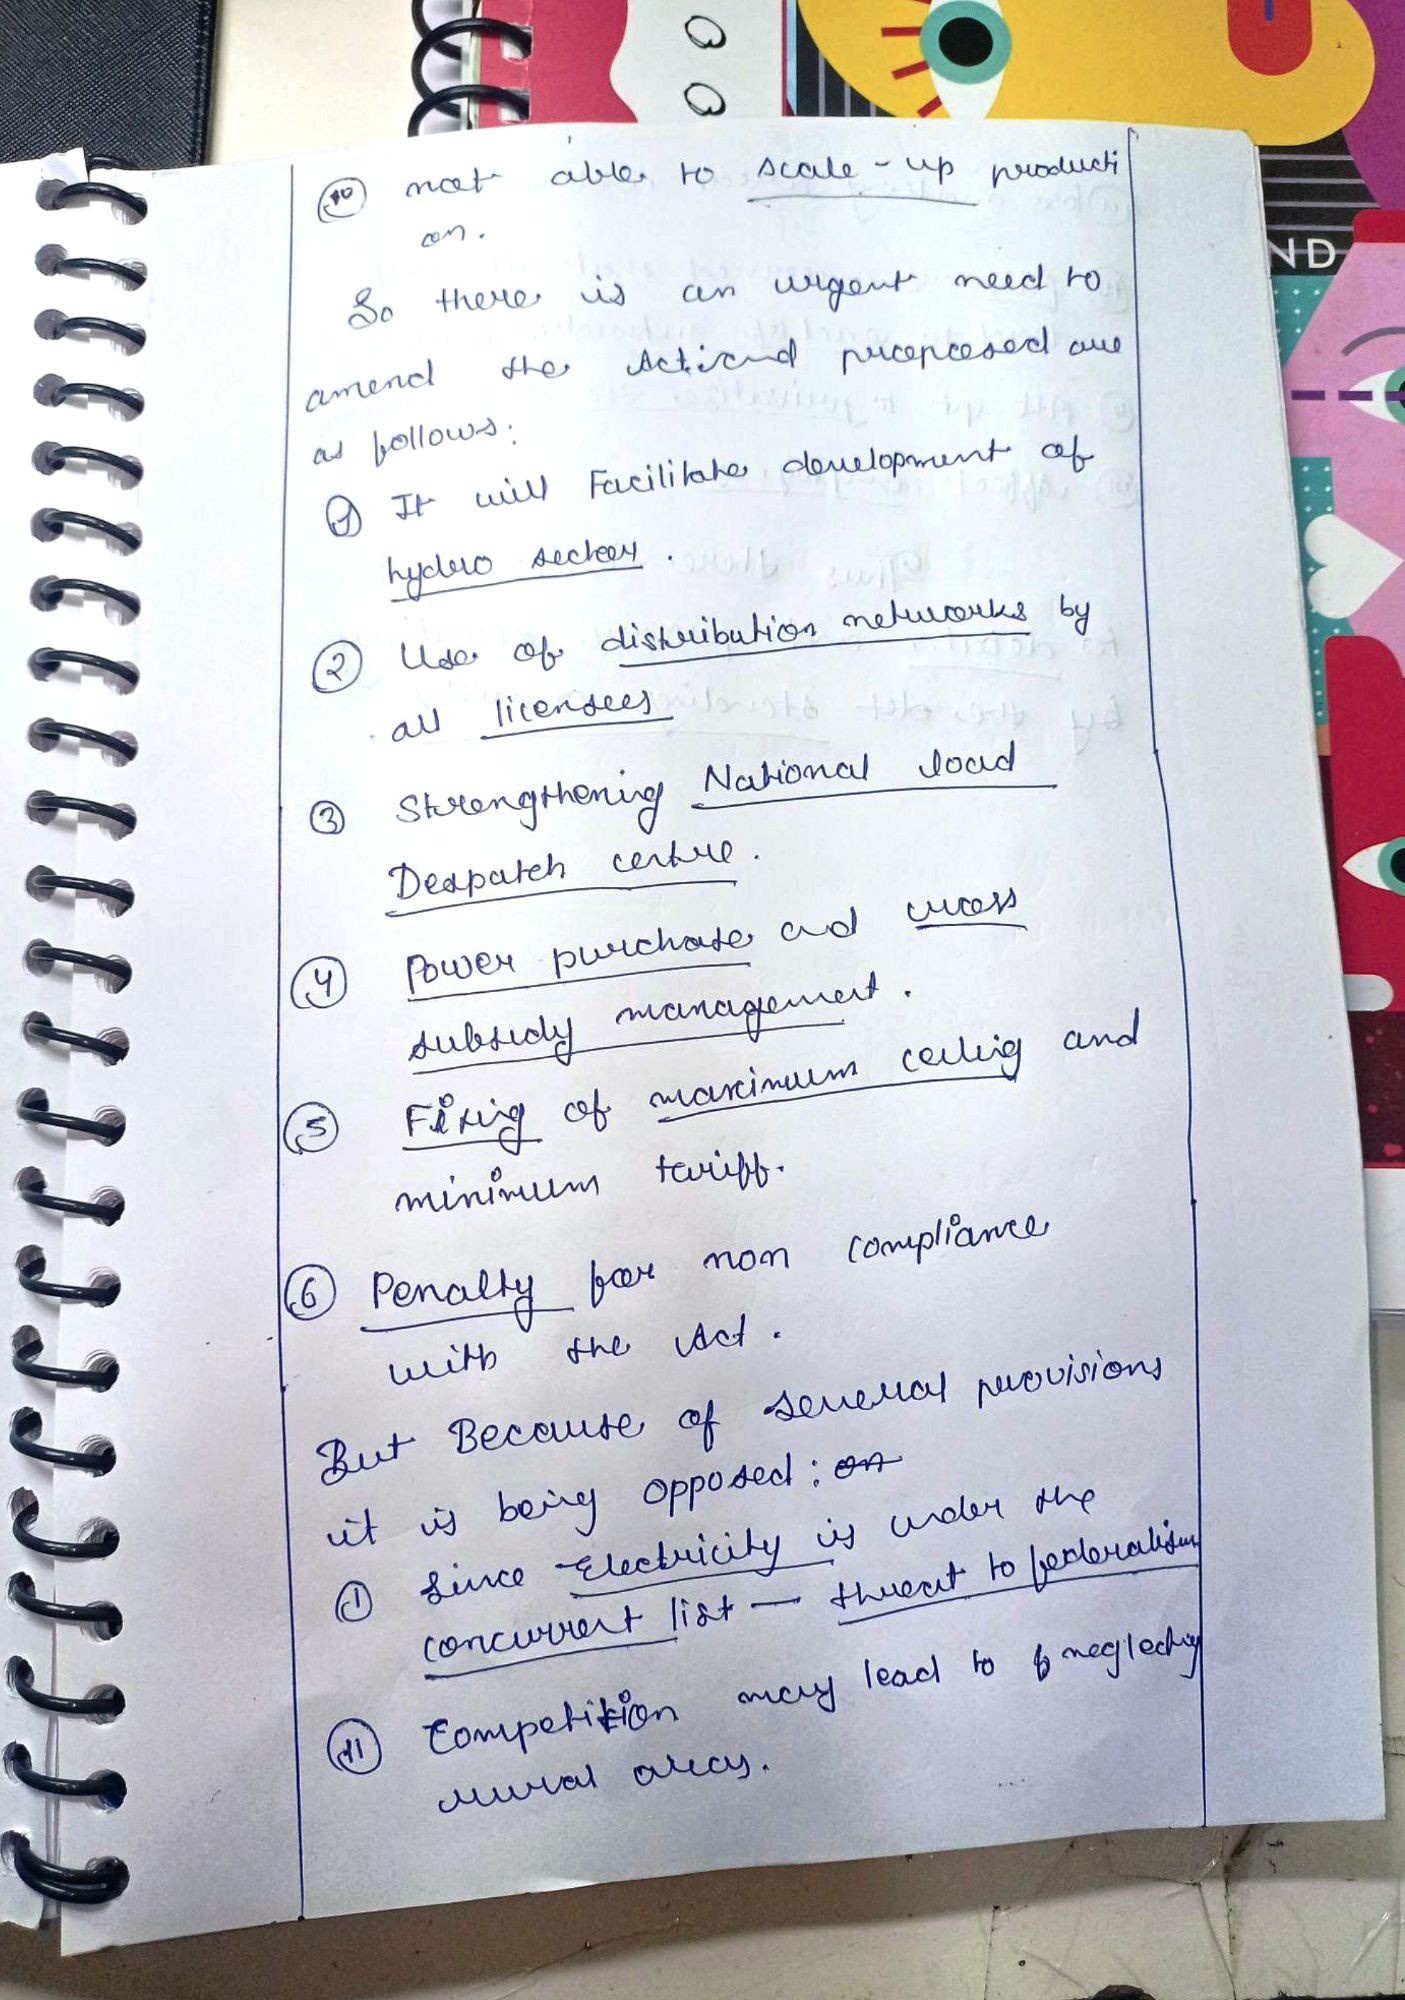 not able to scale-up producti
on.
So there is an urgent need to
amend the Act and proposed are
as follows:
① It will Facilitate development of
hydro sector.
② Use of distribution networks by
all licensees
③ Strengthening National load
Despatch centre.
④ Power purchase and cross
subsidy management.
⑤ Fixing of maximum ceiling and
minimum tariff.
⑥ Penalty for non compliance
with the Act.
But Because of several provisions
it is being opposed:
① Since Electricity is under the
concurrent list — threat to federalism
⑪ Competition may lead to neglecting
rural areas.
ND